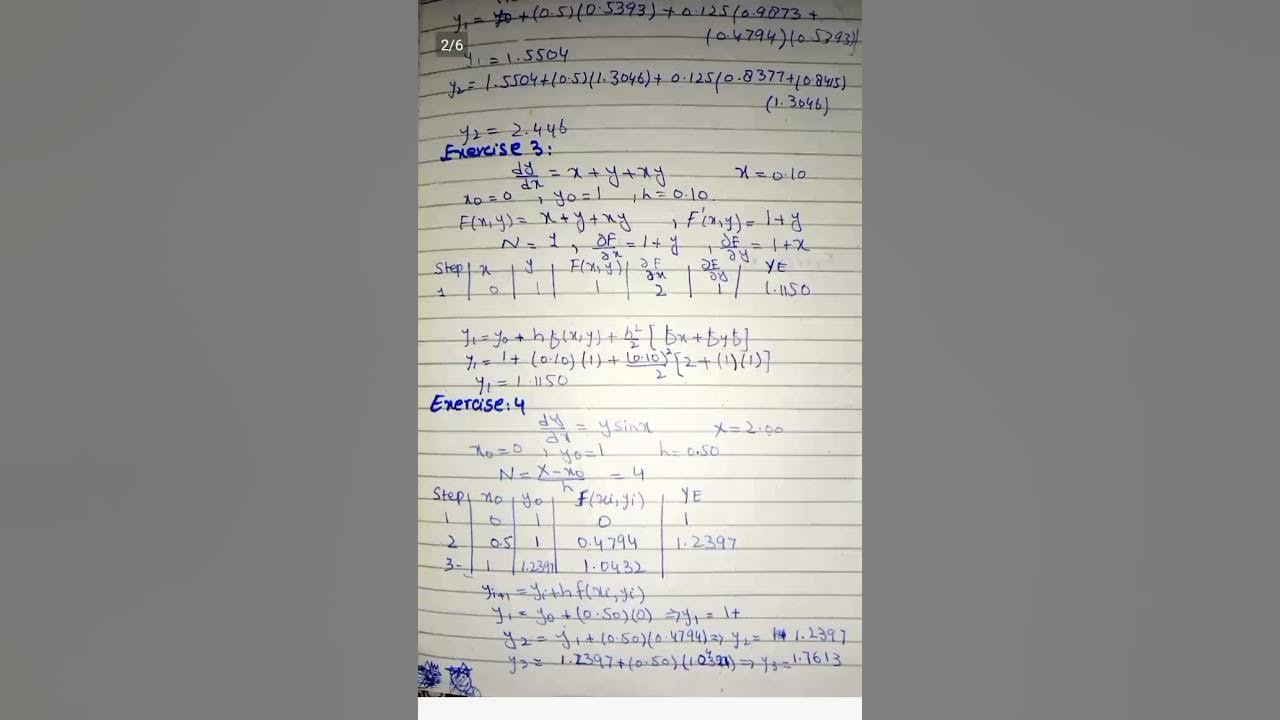 y₁ = y0 + (0.5)(0.5393) + 0.125(0.9873 +
(0.4794)(0.5393))
2/6
y₁ = 1.5504
y₂ = 1.5504+(0.5)(1.3046)+ 0.125(0.8377+(0.8415)
(1.3046)
y₂ = 2.446
Exercise 3:
dy/dx = x + y + xy x = 0.10
x0 = 0 , y0 = 1 , h = 0.10.
F(x,y) = x + y + xy , F'(x,y) = 1 + y
N = 1 , ∂F/∂x = 1 + y , ∂F/∂y = 1 + x
Step | x | y | F(x,y) | ∂F/∂x | ∂F/∂y | YE
1 | 0 | 1 | 1 | 2 | 1 | 1.1150
y₁ = y0 + h f(x,y) + h²/2 [fx + fyf]
y₁ = 1 + (0.10)(1) + (0.10)²/2 [2 + (1)(1)]
y₁ = 1.1150
Exercise: 4
dy/dx = y sinx X = 2.00
x0 = 0 , y0 = 1 h = 0.50
N = X - x0/h = 4
Step | x0 | y0 | F(xi,yi) | YE
1 | 0 | 1 | 0 | 1
2 | 0.5 | 1 | 0.4794 | 1.2397
3- | 1 | 1.2397 | 1.0432
yi+1 = yi + h f(xi,yi)
y₁ = y0 + (0.50)(0) ⇒ y₁ = 1+
y₂ = y₁ + (0.50)(0.4794) ⇒ y₂ = 1.2397
y₃ = 1.2397 + (0.50) ⇒ y₃ = 1.7613